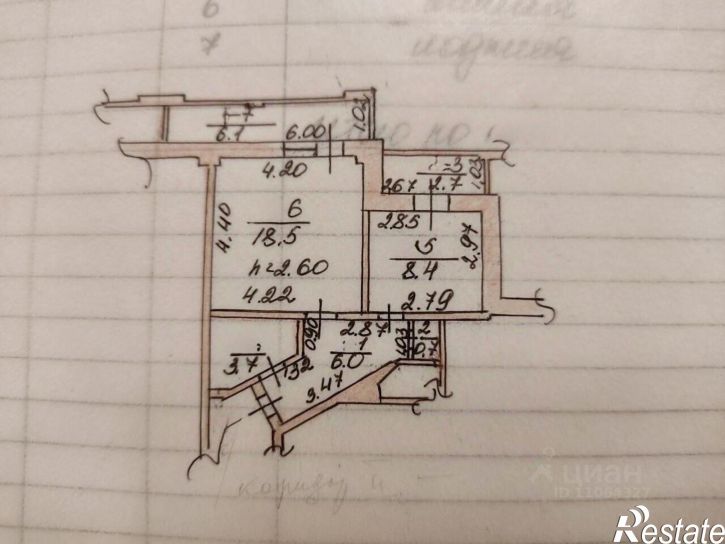 6
7 лоджия
7
6.1
6.00
1.03
4.20
3
2.7
267
1.03
4.40
6
18.5
h=2.60
4.22
2.85
5
8.4
2.97
2.79
0.90
2.87
1
6.0
1.03
2
0.7
3.7
1.32
3.47
коридор
циан
ID 11065327
Restate